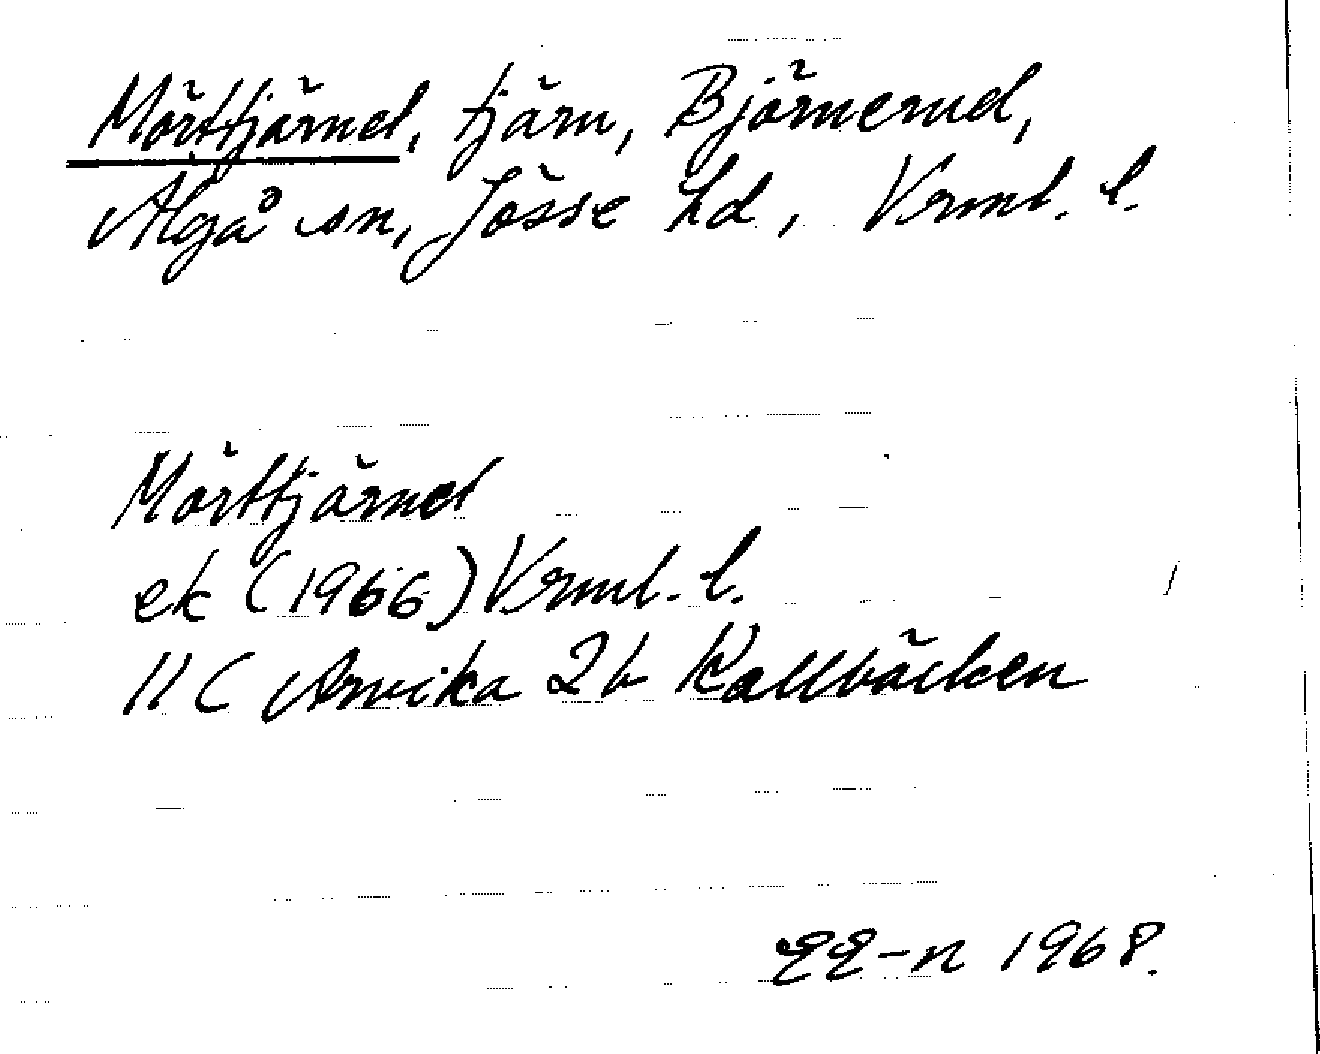 Mörttjärnet, tjärn, Björnerud,
Älgå sn, Jösse hd, Vrml. l.
Mörttjärnet
ek (1966) Vrml. l.
11C Arvika 2b Kallbäcken
EE-n 1968.